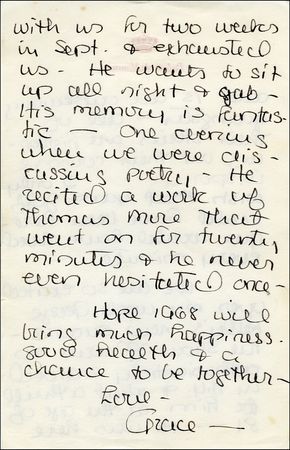 with us for two weeks
in Sept. & exhausted
us - He wants to sit
up all night & gab -
His memory is fantas-
tic — One evening
when we were dis-
cussing poetry - He
recited a work of
Thomas More that
went on for twenty
minutes & he never
even hesitated once -
Hope 1968 will
bring much happiness.
good health & a
chance to be together -
Love -
Grace —